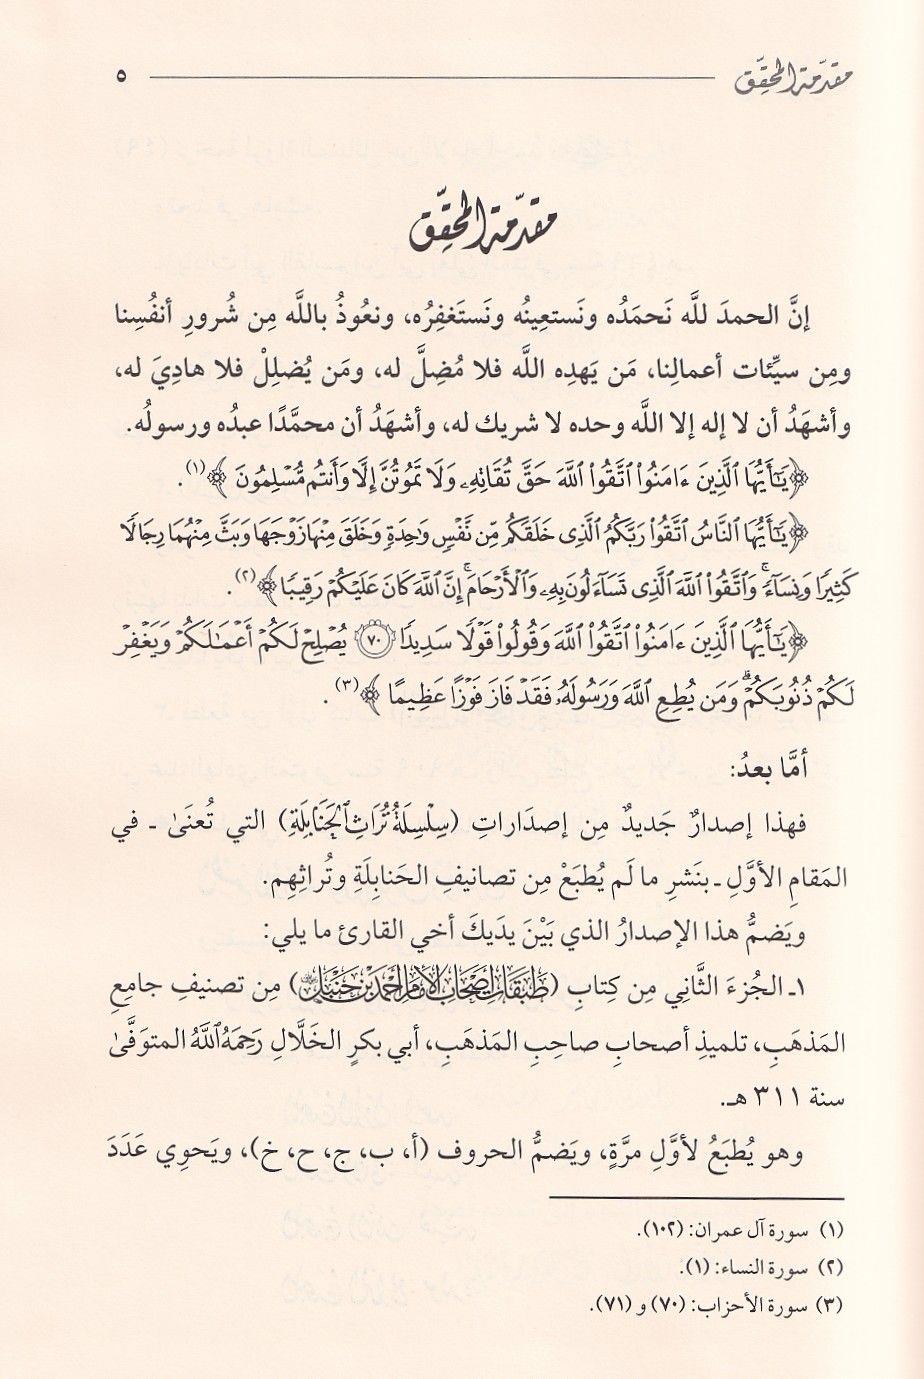 مقدّمة المحقّق ٥
مقدّمة المحقّق
إنَّ الحمدَ للَّه نَحمَدُه ونَستعِينُه ونَستَغفِرُه، ونعُوذُ باللَّه مِن شُرورِ أنفُسِنا
ومِن سيِّئات أعمالِنا، مَن يَهدِه اللَّه فلا مُضِلَّ له، ومَن يُضلِلْ فلا هادِيَ له،
وأشهَدُ أن لا إله إلا اللَّه وحده لا شريك له، وأشهَدُ أن محمَّدًا عبدُه ورسولُه.
﴿يَٰٓأَيُّهَا ٱلَّذِينَ ءَامَنُوا۟ ٱتَّقُوا۟ ٱللَّهَ حَقَّ تُقَاتِهِۦ وَلَا تَمُوتُنَّ إِلَّا وَأَنتُم مُّسْلِمُونَ﴾(١).
﴿يَٰٓأَيُّهَا ٱلنَّاسُ ٱتَّقُوا۟ رَبَّكُمُ ٱلَّذِى خَلَقَكُم مِّن نَّفْسٍ وَٰحِدَةٍ وَخَلَقَ مِنْهَا زَوْجَهَا وَبَثَّ مِنْهُمَا رِجَالًا
كَثِيرًا وَنِسَآءً ۚ وَٱتَّقُوا۟ ٱللَّهَ ٱلَّذِى تَسَآءَلُونَ بِهِۦ وَٱلْأَرْحَامَ ۚ إِنَّ ٱللَّهَ كَانَ عَلَيْكُمْ رَقِيبًا﴾(٢).
﴿يَٰٓأَيُّهَا ٱلَّذِينَ ءَامَنُوا۟ ٱتَّقُوا۟ ٱللَّهَ وَقُولُوا۟ قَوْلًا سَدِيدًا ٧٠ يُصْلِحْ لَكُمْ أَعْمَٰلَكُمْ وَيَغْفِرْ
لَكُمْ ذُنُوبَكُمْ ۗ وَمَن يُطِعِ ٱللَّهَ وَرَسُولَهُۥ فَقَدْ فَازَ فَوْزًا عَظِيمًا﴾(٣).
أمَّا بعدُ:
فهذا إصدارٌ جَديدٌ مِن إصدَاراتِ (سِلْسِلَةُ تُرَاثِ ٱلْحَنَابِلَةِ) التي تُعنَىٰ ـ في
المَقامِ الأوَّلِ ـ بنَشرِ ما لَم يُطبَعْ مِن تصانيفِ الحَنابِلَةِ وتُراثِهِم.
ويَضمُّ هذا الإصدارُ الذي بَيْنَ يدَيكَ أخي القارئ ما يلي:
١ـ الجُزءَ الثَّانِي مِن كِتابِ (طَبَقَات أَصْحَاب الإمَام أَحْمَد بْن حَنْبَل) مِن تصنيفِ جامِعِ
المَذهَبِ، تلميذِ أصحابِ صاحِبِ المَذهَبِ، أبي بكرٍ الخَلَّالِ رَحِمَهُ ٱللَّهُ المتوَفَّىٰ
سنة ٣١١ هـ.
وهو يُطبَعُ لأوَّلِ مرَّةٍ، ويَضمُّ الحروف (أ، ب، ج، ح، خ)، ويَحوِي عَدَدَ
(١) سورة آل عمران: (١٠٢).
(٢) سورة النساء: (١).
(٣) سورة الأحزاب: (٧٠) و (٧١).